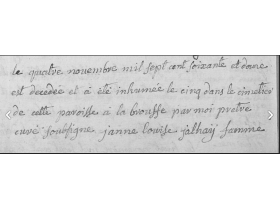 le quatre novembre mil sept cent soixante et douze
est decedée et a été inhumée le cinq dans le cimetiere
de cette paroisse a la brousse par moi pretre
curé soussigné janne louise jalhaÿ famme